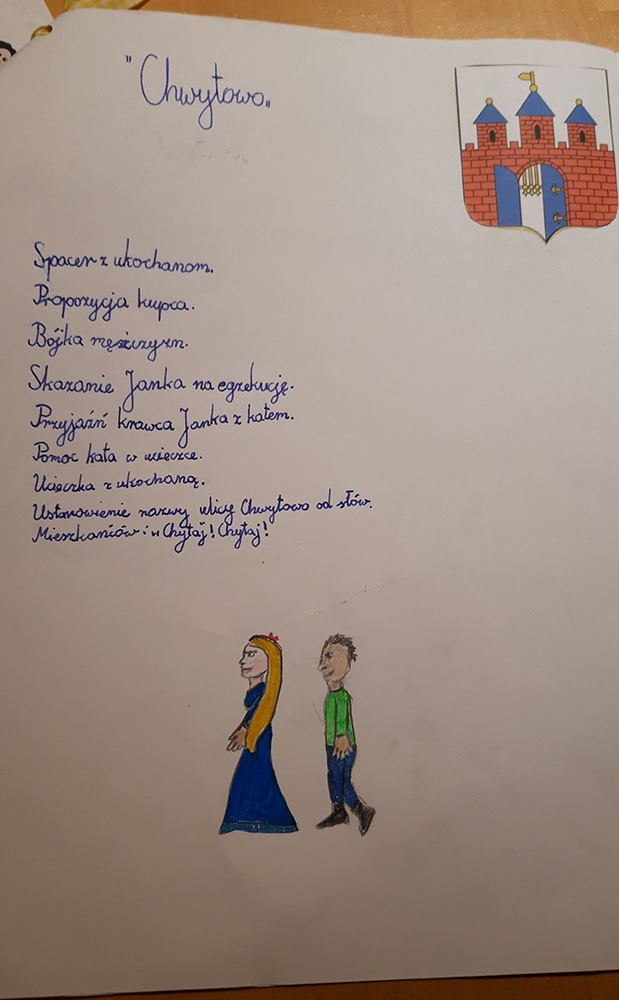 "Chwytowo„
Spacer z ukochanom.
Propozycja kupca.
Bójka mężczyzn.
Skazanie Janka na egzekucję.
Przyjaźń krawca Janka z katem.
Pomoc kata w ucieczce.
Ucieczka z ukochaną.
Ustanowienie nazwy ulicy Chwytowo od słów.
Mieszkańców: „Chytaj! Chytaj!